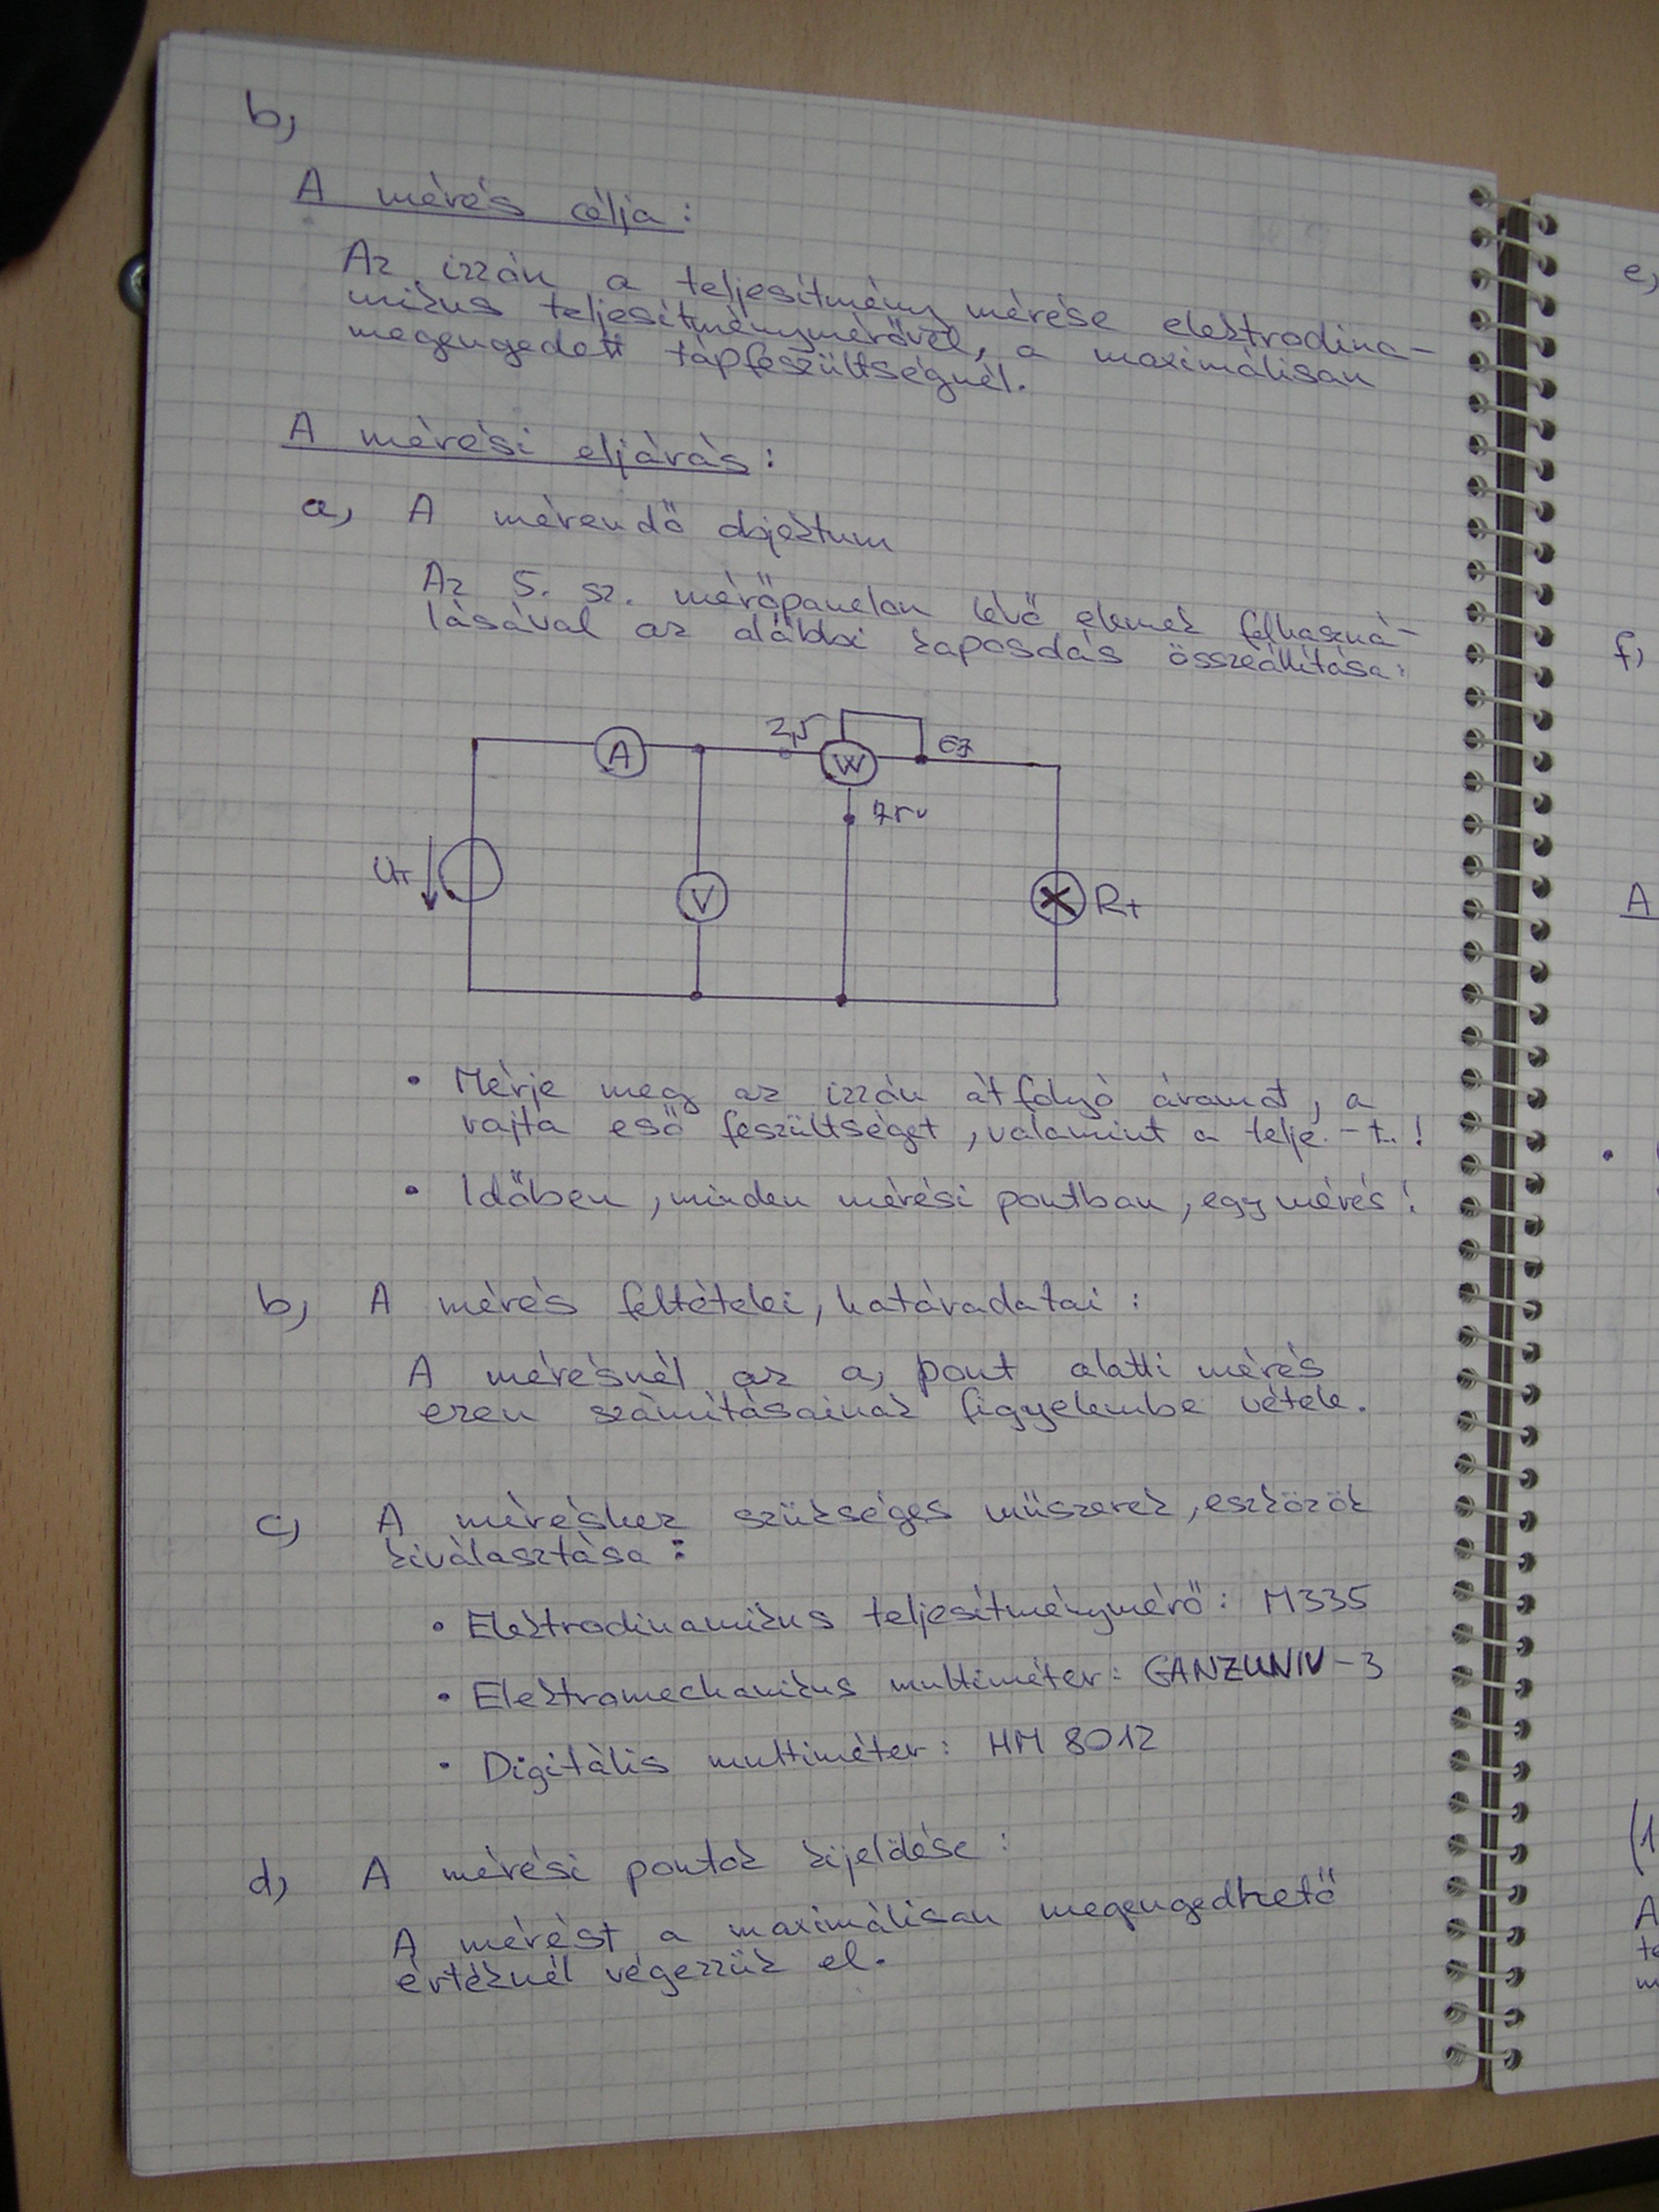 b,
A mérés célja:
Az izzón a teljesítmény mérése elektrodina-
mikus teljesítménymérővel, a maximálisan
megengedett tápfeszültségnél.
A mérési eljárás:
a, A mérendő objektum
Az 5. sz. mérőpanelon lévő elemek felhaszná-
lásával az alábbi kapcsolás összeállítása:
2,5
A
W
75V
UT
V
Rt
• Mérje meg az izzón átfolyó áramot, a
rajta eső feszültséget, valamint a telje.-t.!
• Időben, minden mérési pontban, egy mérés!
b, A mérés feltételei, határadatai:
A mérésnél az a, pont alatti mérés
ezen számításainak figyelembe vétele.
c, A méréshez szükséges műszerek, eszközök
kiválasztása:
• Elektrodinamikus teljesítménymérő: M335
• Elektromechanikus multiméter: GANZUNIV-3
• Digitális multiméter: HM 8012
d, A mérési pontok kijelölése:
A mérést a maximálisan megengedhető
értéknél végezzük el.
e,
f,
A
•
(1
A
te
m